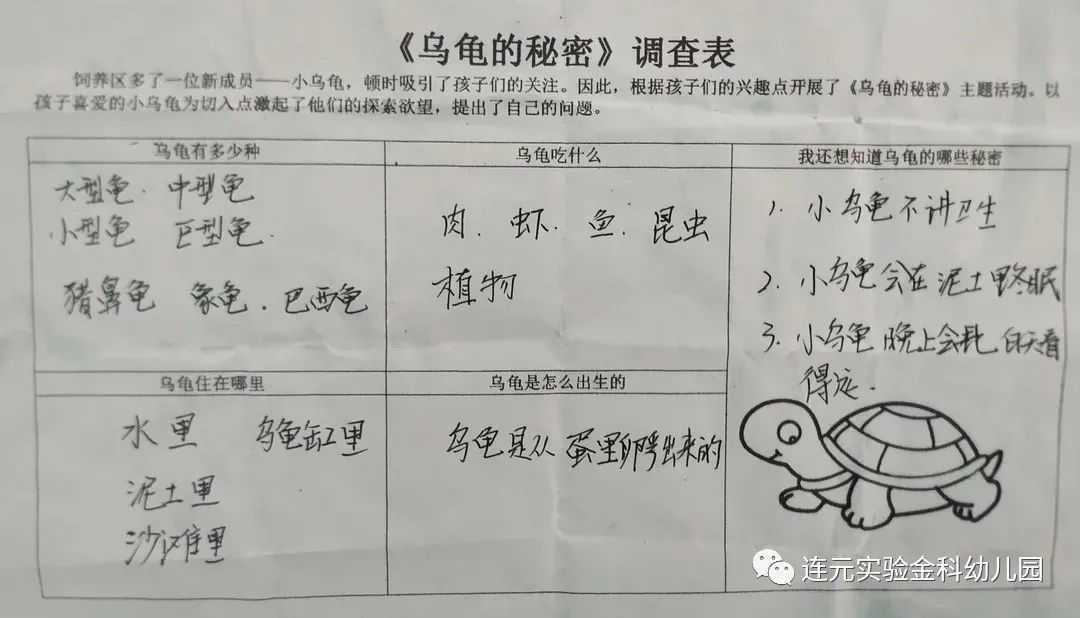 《乌龟的秘密》调查表
饲养区多了一位新成员——小乌龟，顿时吸引了孩子们的关注。因此，根据孩子们的兴趣点开展了《乌龟的秘密》主题活动。以
孩子喜爱的小乌龟为切入点激起了他们的探索欲望，提出了自己的问题。
乌龟有多少种
大型龟. 中型龟
小型龟 巨型龟.
猪鼻龟 象龟. 巴西龟
乌龟吃什么
肉. 虾. 鱼. 昆虫
植物
我还想知道乌龟的哪些秘密
1. 小乌龟不讲卫生
2. 小乌龟会在泥土里冬眠
3. 小乌龟晚上会比白天看
得远.
乌龟住在哪里
水里 乌龟缸里
泥土里
沙滩里
乌龟是怎么出生的
乌龟是从蛋里孵出来的
连元实验金科幼儿园